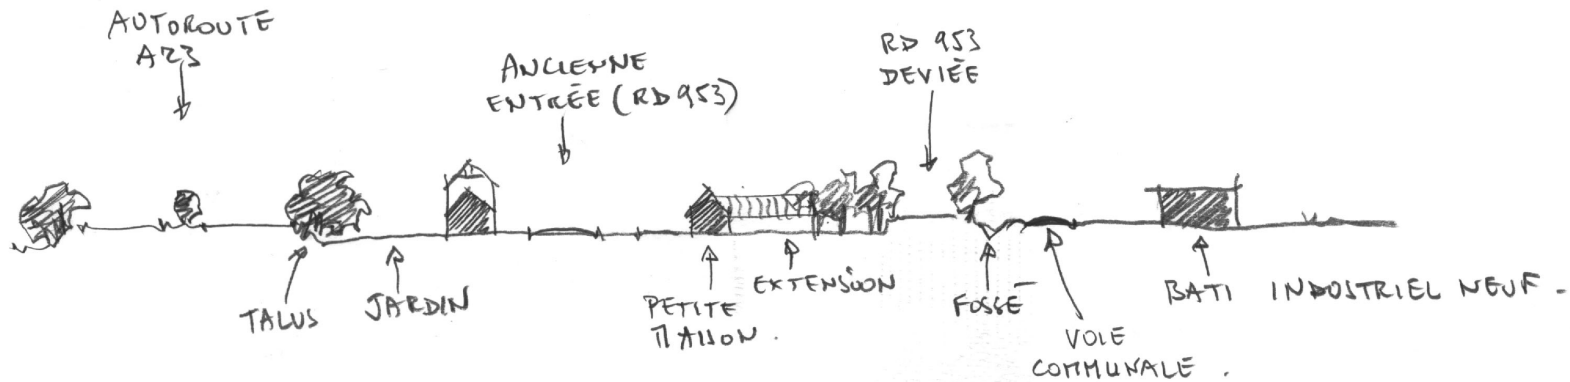 AUTOROUTE
A23
ANCIENNE
ENTRÉE (RD 953)
RD 953
DEVIÉE
TALUS
JARDIN
PETITE
MAISON.
EXTENSION
FOSSÉ
VOIE
COMMUNALE.
BATI INDUSTRIEL NEUF.